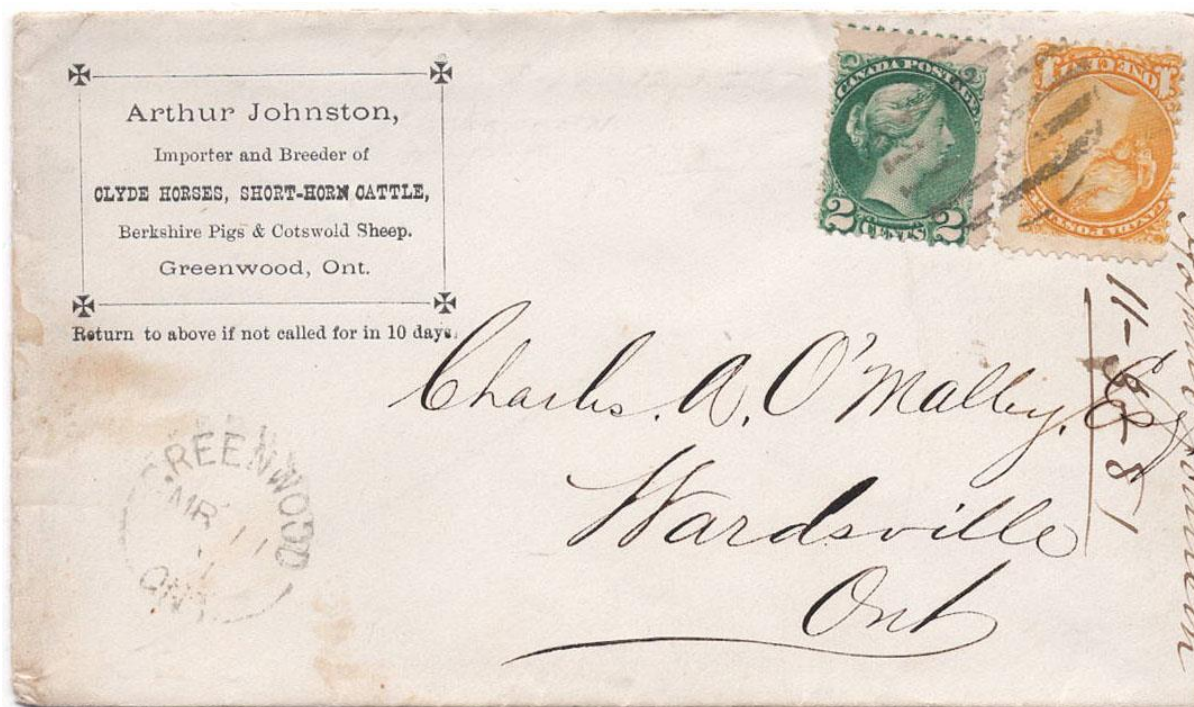 Arthur Johnston,
Importer and Breeder of
CLYDE HORSES, SHORT-HORN CATTLE,
Berkshire Pigs & Cotswold Sheep.
Greenwood, Ont.
Return to above if not called for in 10 days.
CANADA POSTAGE
2 CENTS 2
1 ONE CENT 1
CANADA POSTAGE
Charles. A. O'Malley, Esq
Wardsville
Ont
GREENWOOD
MR 11
ONT